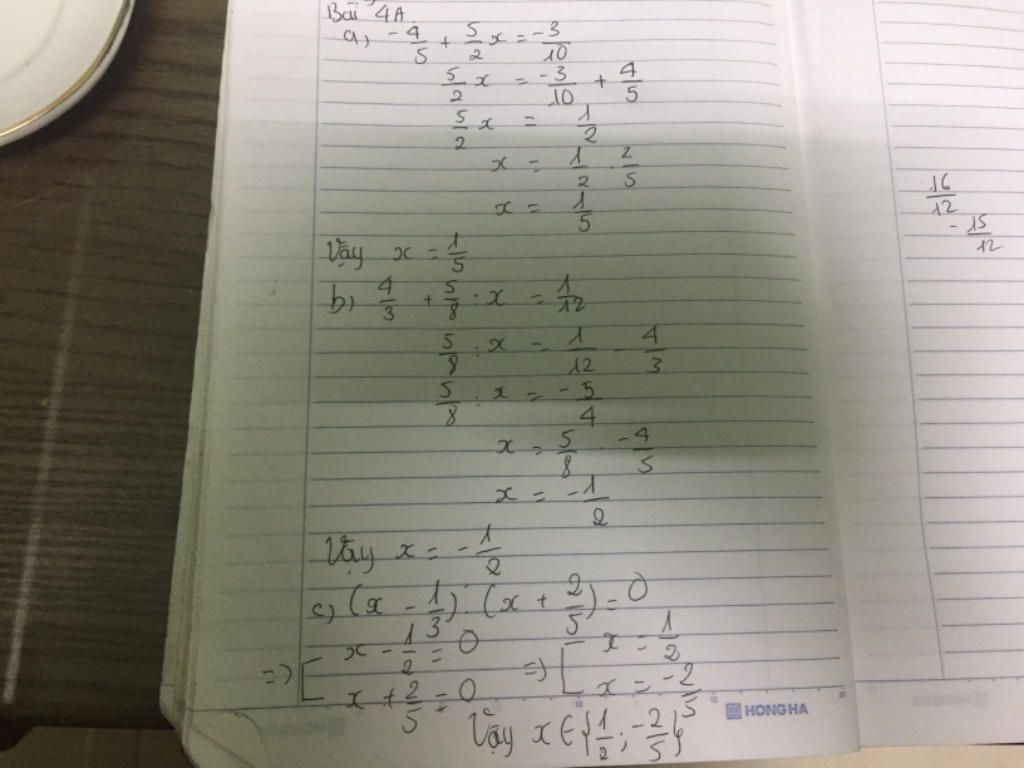 Bài 4A
a) -4/5 + 5/2 x = -3/10
5/2 x = -3/10 + 4/5
5/2 x = 1/2
x = 1/2 . 2/5
x = 1/5
Vậy x = 1/5
b) 4/3 + 5/8 : x = 1/12
5/8 : x = 1/12 - 4/3
5/8 : x = -5/4
x = 5/8 . -4/5
x = -1/2
Vậy x = -1/2
c) (x - 1/3) . (x + 2/5) = 0
=> [ x - 1/2 = 0 => [ x = 1/2
x + 2/5 = 0 x = -2/5
Vậy x ∈ {1/2 ; -2/5}
HONG HA
16/12
- 15/12